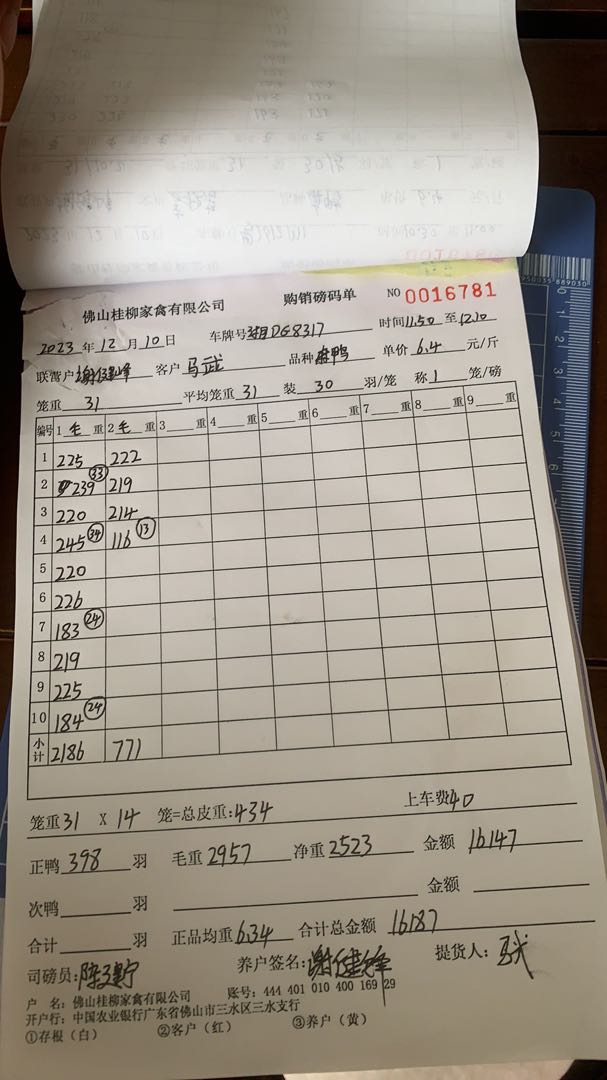 佛山桂柳家禽有限公司 购销磅码单 NO 0016781
2023 年 12 月 10 日 车牌号 湘DG8317 时间 11.50 至 12.10
联营户 谢健峰 客户 马武 品种 麻鸭 单价 6.4 元/斤
笼重 31 平均笼重 31 装 30 羽/笼 称 1 笼/磅
编号 1 毛 重 2 毛 重 3 重 4 重 5 重 6 重 7 重 8 重 9 重
1 225 222
2 239 33 219
3 220 214
4 245 34 116 13
5 220
6 226
7 183 24
8 219
9 225
10 184 24
小计 2186 771
笼重 31 X 14 笼=总皮重: 434 上车费 40
正鸭 398 羽 毛重 2957 净重 2523 金额 16147
次鸭 羽 金额
合计 羽 正品均重 6.34 合计总金额 16187
司磅员: 养户签名: 谢健锋 提货人: 马武
户 名: 佛山桂柳家禽有限公司 账号: 444 401 010 400 169 29
开户行: 中国农业银行广东省佛山市三水区三水支行
①存根（白） ②客户（红） ③养户（黄）